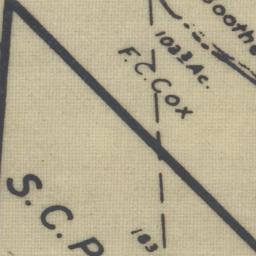 oothe
102 3/4 Ac.
F.C. Cox
S.C.P
103